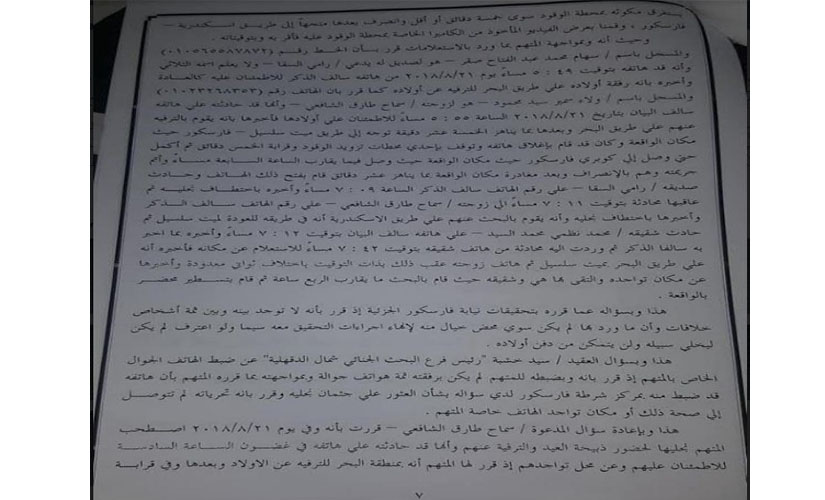 يستغرق مكوثه بمحطة الوقود سوي خمسة دقائق أو أقل وانصرف بعدها متجهاً إلي طريق اسكندرية –
فارسكور ، وقمنا بعرض الفيديو المأخوذ من الكاميرا الخاصة بمحطة الوقود عليه فأقر به وبتوقيتاته .
وحيث أنه وبمواجهة المتهم بما ورد بالاستعلامات قرر بشأن الخط رقم (٠١٠٥٦٥٥٨٧٨٧٢)
والمسجل باسم / سهام محمد عبد الفتاح صقر – هو لصديق له يدعي / رامي السقا – ولا يعلم اسمه الثلاثي
وأنه قد هاتفه بتوقيت ٥ : ٤٩ مساءً يوم ٢٠١٨/٨/٢١ من هاتفه سالف الذكر للاطمئنان عليه كالعادة
وأخبره بانه رفقة أولاده علي طريق البحر للترفيه عن أولاده كما قرر بان الهاتف رقم (٠١٠٢٣٢٦٨٣٥٣)
والمسجل باسم / ولاء سمير سيد محمود – هو لزوجته / سماح طارق الشافعي – وأنها قد حادثته علي هاتفه
سالف البيان بتاريخ ٢٠١٨/٨/٢١ الساعة ٥ : ٥٥ مساءً للاطمئنان علي أولادها فأخبرها بانه يقوم بالترفيه
عنهم علي طريق البحر وبعدها بما يناهز الخمسة عشر دقيقة توجه إلي طريق ميت سلسيل – فارسكور حيث
مكان الواقعة وكان قد قام بإغلاق هاتفه وتوقف بإحدي محطات تزويد الوقود وقرابة الخمس دقائق ثم أكمل
حتي وصل إلي كوبري فارسكور حيث مكان الواقعة حيث وصل فيما يقارب الساعة السابعة مساءً وأتم
جريمته وهم بالإنصراف وبعد مغادرة مكان الواقعة بما يناهز عشر دقائق قام بفتح ذلك الهاتف وحادث
صديقه / رامي السقا – علي رقم الهاتف سالف الذكر الساعة ٧ : ٠٩ مساءً وأخبره باختطاف نجليه ثم
عاقبها محادثة بتوقيت ٧ : ١١ مساءً الي زوجته / سماح طارق الشافعي – علي رقم الهاتف سالف الذكر
وأخبرها باختطاف نجليه وأنه يقوم بالبحث عنهم علي طريق الاسكندرية أنه في طريقه للعودة لميت سلسيل ثم
حادث شقيقه / محمد نظمي محمد السيد – علي هاتفه سالف البيان بتوقيت ٧ : ١٢ مساءً وأخبره بما اخبر
به سالفا الذكر ثم وردت اليه محادثة من هاتف شقيقه بتوقيت ٧ : ٤٢ مساءً للاستعلام عن مكانه فأخبره أنه
علي طريق البحر بميت سلسيل ثم هاتف زوجته عقب ذلك بذات التوقيت باختلاف ثواني معدودة وأخبرها
عن مكان تواجده والتقي بها هي وشقيقه حيث قام بالبحث ما يقارب الربع ساعة ثم قام بتسطير محضر
بالواقعة .
هذا وبسؤاله عما قرره بتحقيقات نيابة فارسكور الجزئية إذ قرر بأنه لا توجد بينه وبين ثمة أشخاص
خلافات وأن ما ورد بها لم يكن سوي محض خيال منه لإنهاء اجراءات التحقيق معه سيما ولو اعترف لم يكن
ليخلي سبيله ولن يتمكن من دفن أولاده .
هذا وبسؤال العقيد / سيد خشبة "رئيس فرع البحث الجنائي شمال الدقهلية" عن ضبط الهاتف الجوال
الخاص بالمتهم إذ قرر بانه وبضبطه للمتهم لم يكن برفقته ثمة هواتف جوالة وبمواجهته بما قرره المتهم بأن هاتفه
قد ضبط منه بمركز شرطة فارسكور لدي سؤاله بشأن العثور علي جثمان نجليه وقرر بانه تحرياته لم تتوصل
إلي صحة ذلك أو مكان تواجد الهاتف خاصة المتهم .
هذا وبإعادة سؤال المدعوة / سماح طارق الشافعي – قررت بأنه وفي يوم ٢٠١٨/٨/٢١ اصطحب
المتهم نجليها لحضور ذبيحة العيد والترفية عنهم وأنها قد حادثته علي هاتفه في غضون الساعة السادسة
للاطمئنان عليهم وعن محل تواجدهم إذ قرر لها المتهم أنه بمنطقة البحر للترفيه عن الاولاد وبعدها وفي قرابة
٧